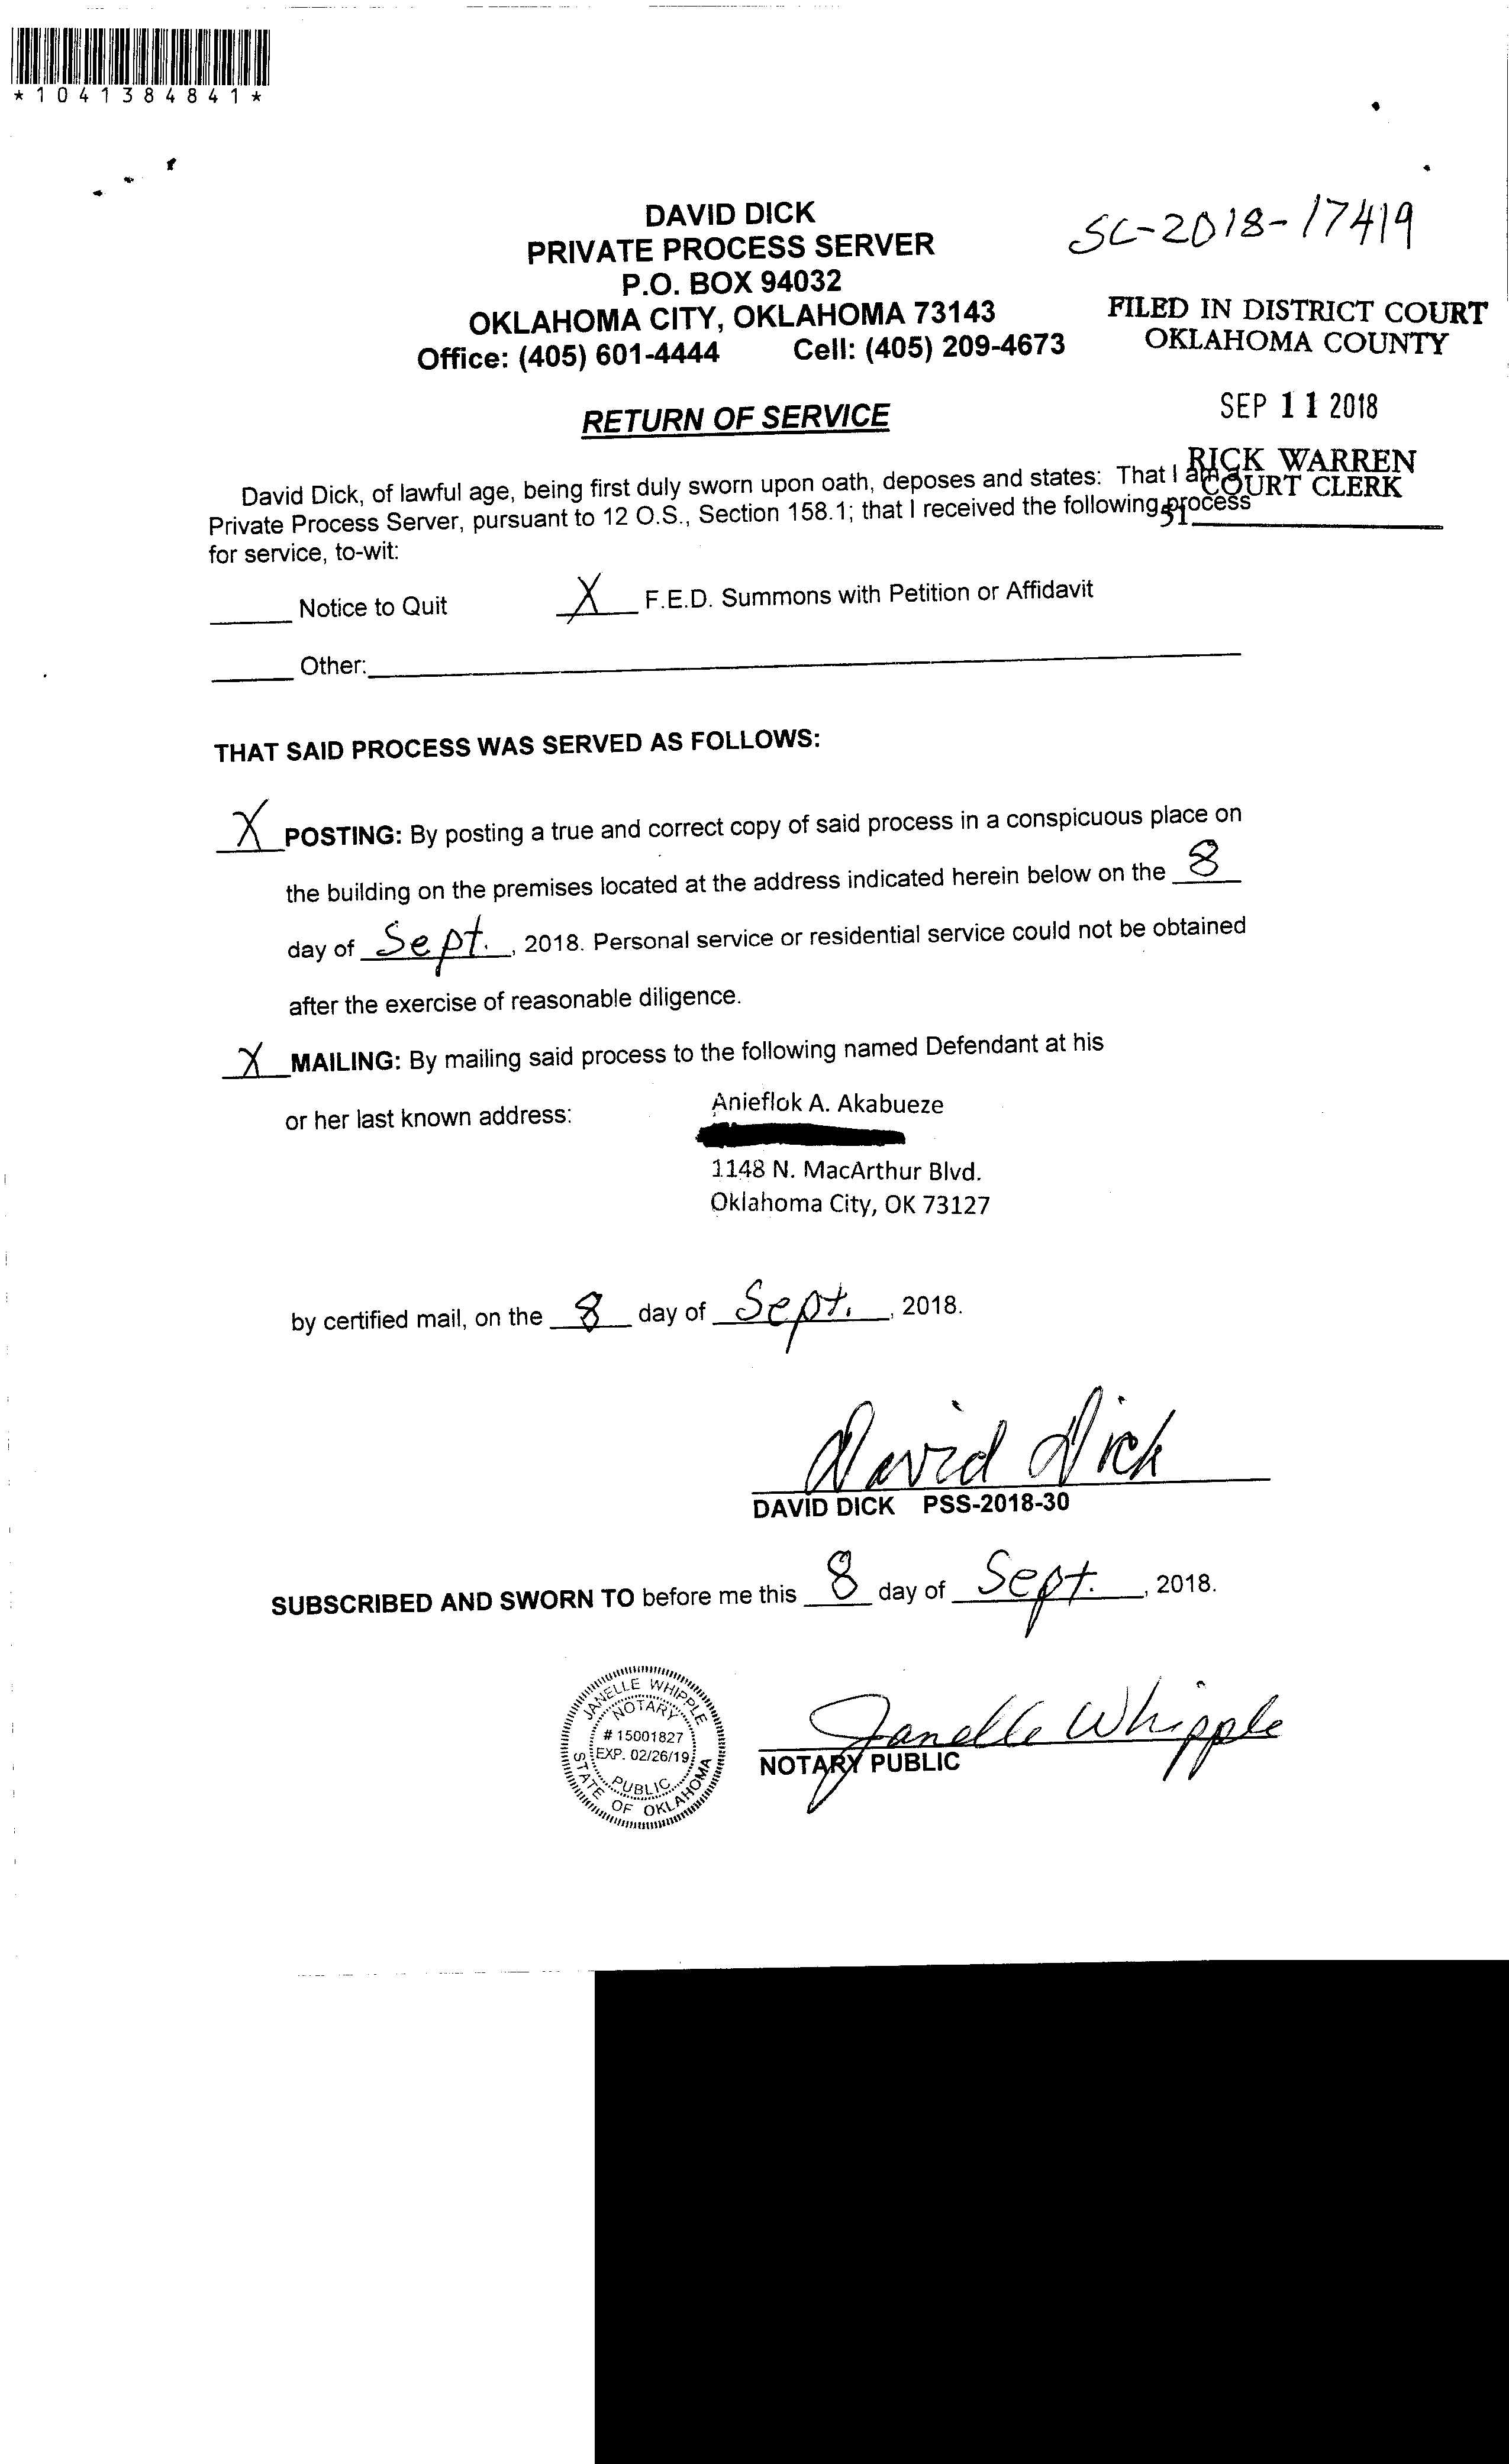 *1041384841*
DAVID DICK
PRIVATE PROCESS SERVER
P.O. BOX 94032
OKLAHOMA CITY, OKLAHOMA 73143
Office: (405) 601-4444 Cell: (405) 209-4673
SC-2018-17419
FILED IN DISTRICT COURT
OKLAHOMA COUNTY
SEP 11 2018
RICK WARREN
COURT CLERK
51
RETURN OF SERVICE
David Dick, of lawful age, being first duly sworn upon oath, deposes and states: That I am a
Private Process Server, pursuant to 12 O.S., Section 158.1; that I received the following process
for service, to-wit:
Notice to Quit X F.E.D. Summons with Petition or Affidavit
Other:
THAT SAID PROCESS WAS SERVED AS FOLLOWS:
X POSTING: By posting a true and correct copy of said process in a conspicuous place on
the building on the premises located at the address indicated herein below on the 8
day of Sept., 2018. Personal service or residential service could not be obtained
after the exercise of reasonable diligence.
X MAILING: By mailing said process to the following named Defendant at his
or her last known address:
Anieflok A. Akabueze
1148 N. MacArthur Blvd.
Oklahoma City, OK 73127
by certified mail, on the 8 day of Sept., 2018.
David Dick
DAVID DICK PSS-2018-30
SUBSCRIBED AND SWORN TO before me this 8 day of Sept., 2018.
JANELLE WHIPPLE
NOTARY
# 15001827
EXP. 02/26/19
PUBLIC
STATE OF OKLAHOMA
Janelle Whipple
NOTARY PUBLIC